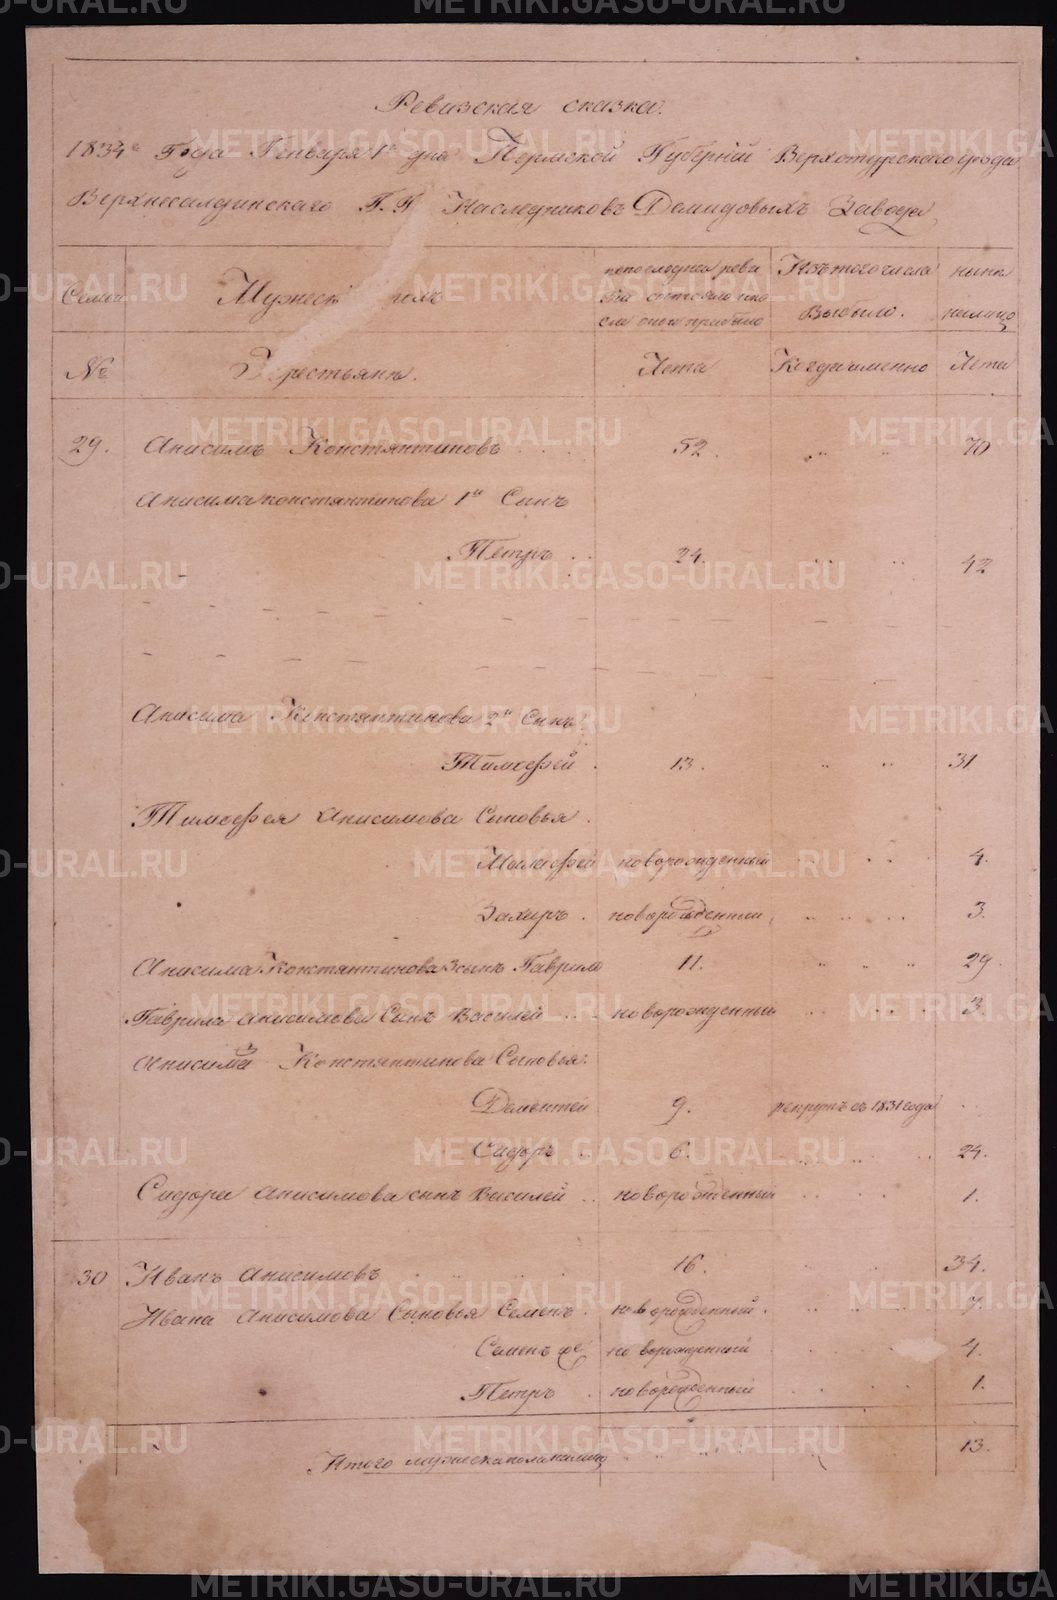 Ревизская сказка.
1834го Года Генваря 1го дня Пермской Губерніи Верхотурскаго уезда
Верхнесалдинскаго Г. Г. Наследниковъ Демидовыхъ Завода
Семьи
Мужескъ полъ
по последней реви
зіи состояло и по
сле оной прибыло
Изъ того числа
выбыло.
ныне
налицо
№
Крестьяне.
Лета
Когда именно
Лета
29. Анисимъ Констянтиновъ 52. 70
Анисима Констянтинова 1й Сынъ
Петръ 24. 42
Анисима Констянтинова 2й Сынъ
Тимофей 13. 31
Тимофея Анисимова Сыновья.
новорожденный 4.
Захаръ новорожденный 3.
Анисима Констянтинова 3 сынъ Гаврило 11. 29.
Гаврила Анисимова Сынъ Василей новорожденный 3
Анисима Констянтинова Сыновья:
Дементей 9. рекрутъ съ 1831 года
Сидоръ 6. 24.
Сидора Анисимова сынъ Василей новорожденный 1.
30 Иванъ Анисимовъ 16. 34.
Ивана Анисимова Сыновья Семенъ новорожденный. 7.
Семенъ же новорожденный 4.
Петръ новорожденный 1.
Итого мужеска пола налицо 13.
METRIKI.GASO-URAL.RU